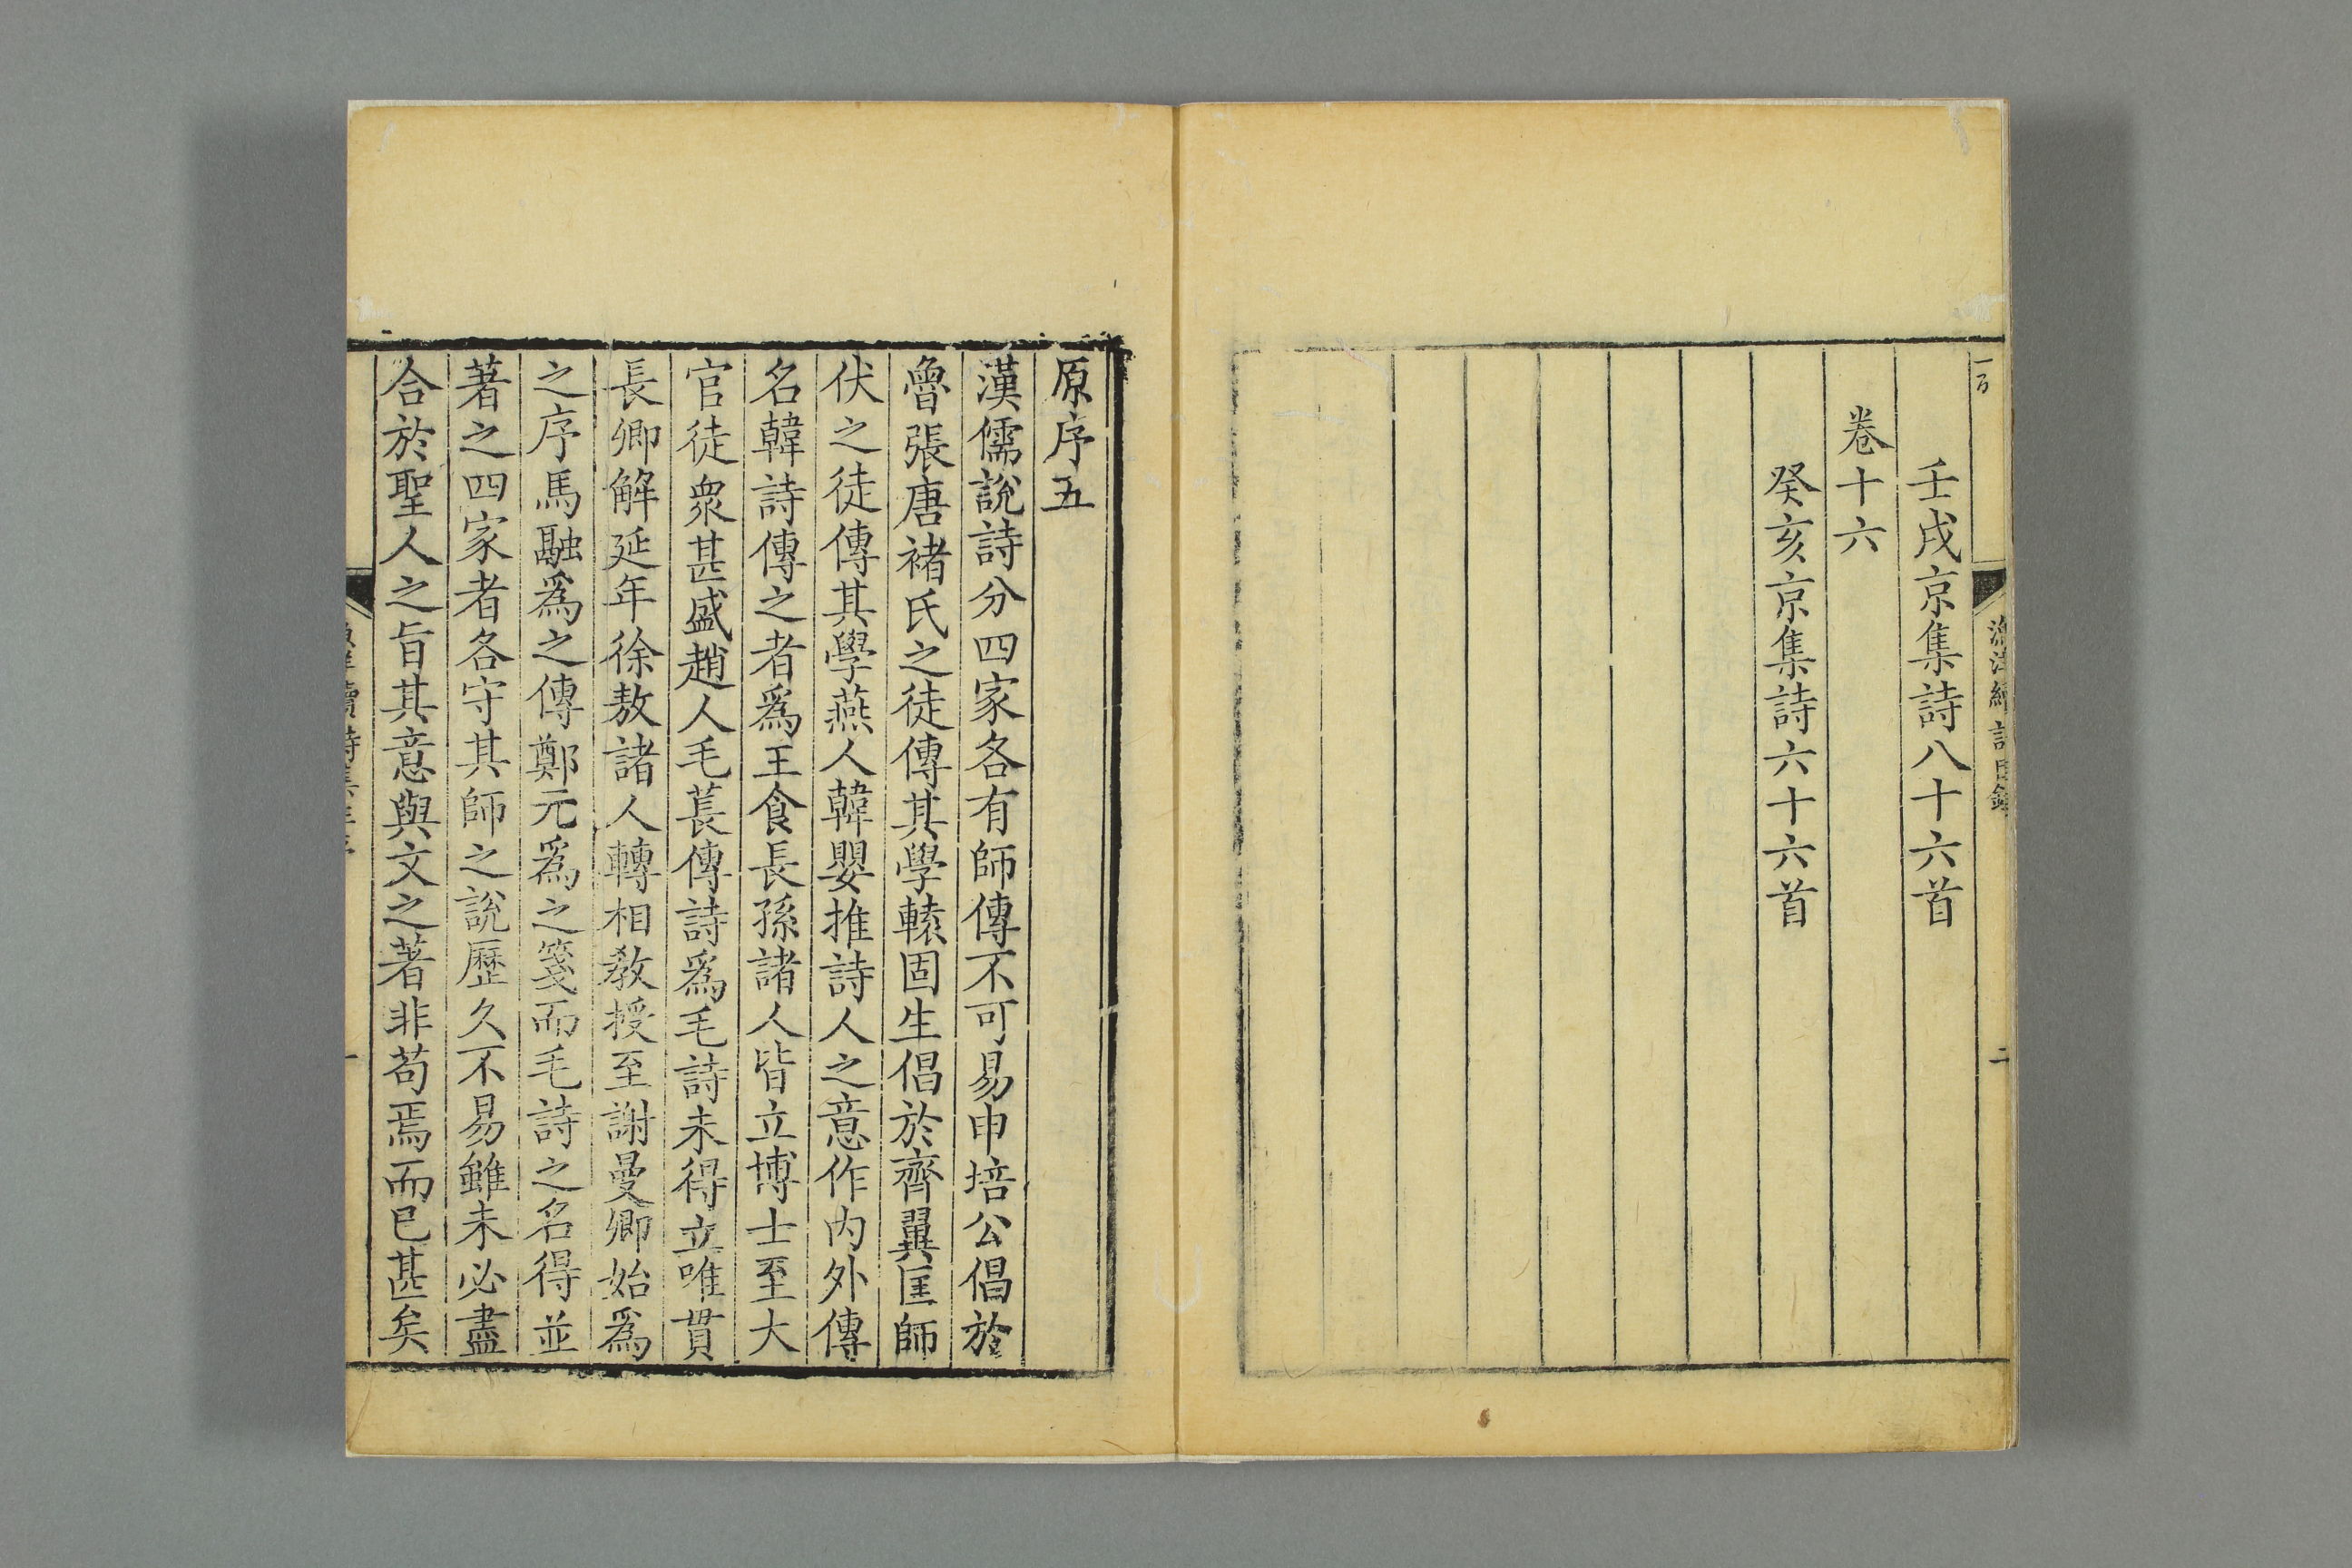 壬戌京集詩八十六首
卷十六
癸亥京集詩六十六首
二
原序五
漢儒說詩分四家各有師傳不可易申培公倡於
魯張唐褚氏之徒傳其學轅固生倡於齊翼匡師
伏之徒傳其學燕人韓嬰推詩人之意作內外傳
名韓詩傳之者爲王食長孫諸人皆立博士至大
官徒衆甚盛趙人毛萇傳詩爲毛詩未得立唯貫
長卿解延年徐敖諸人轉相教授至謝曼卿始爲
之序馬融爲之傳鄭元爲之箋而毛詩之名得並
著之四家者各守其師之說歷久不易雖未必盡
合於聖人之旨其意與文之著非苟焉而已甚矣